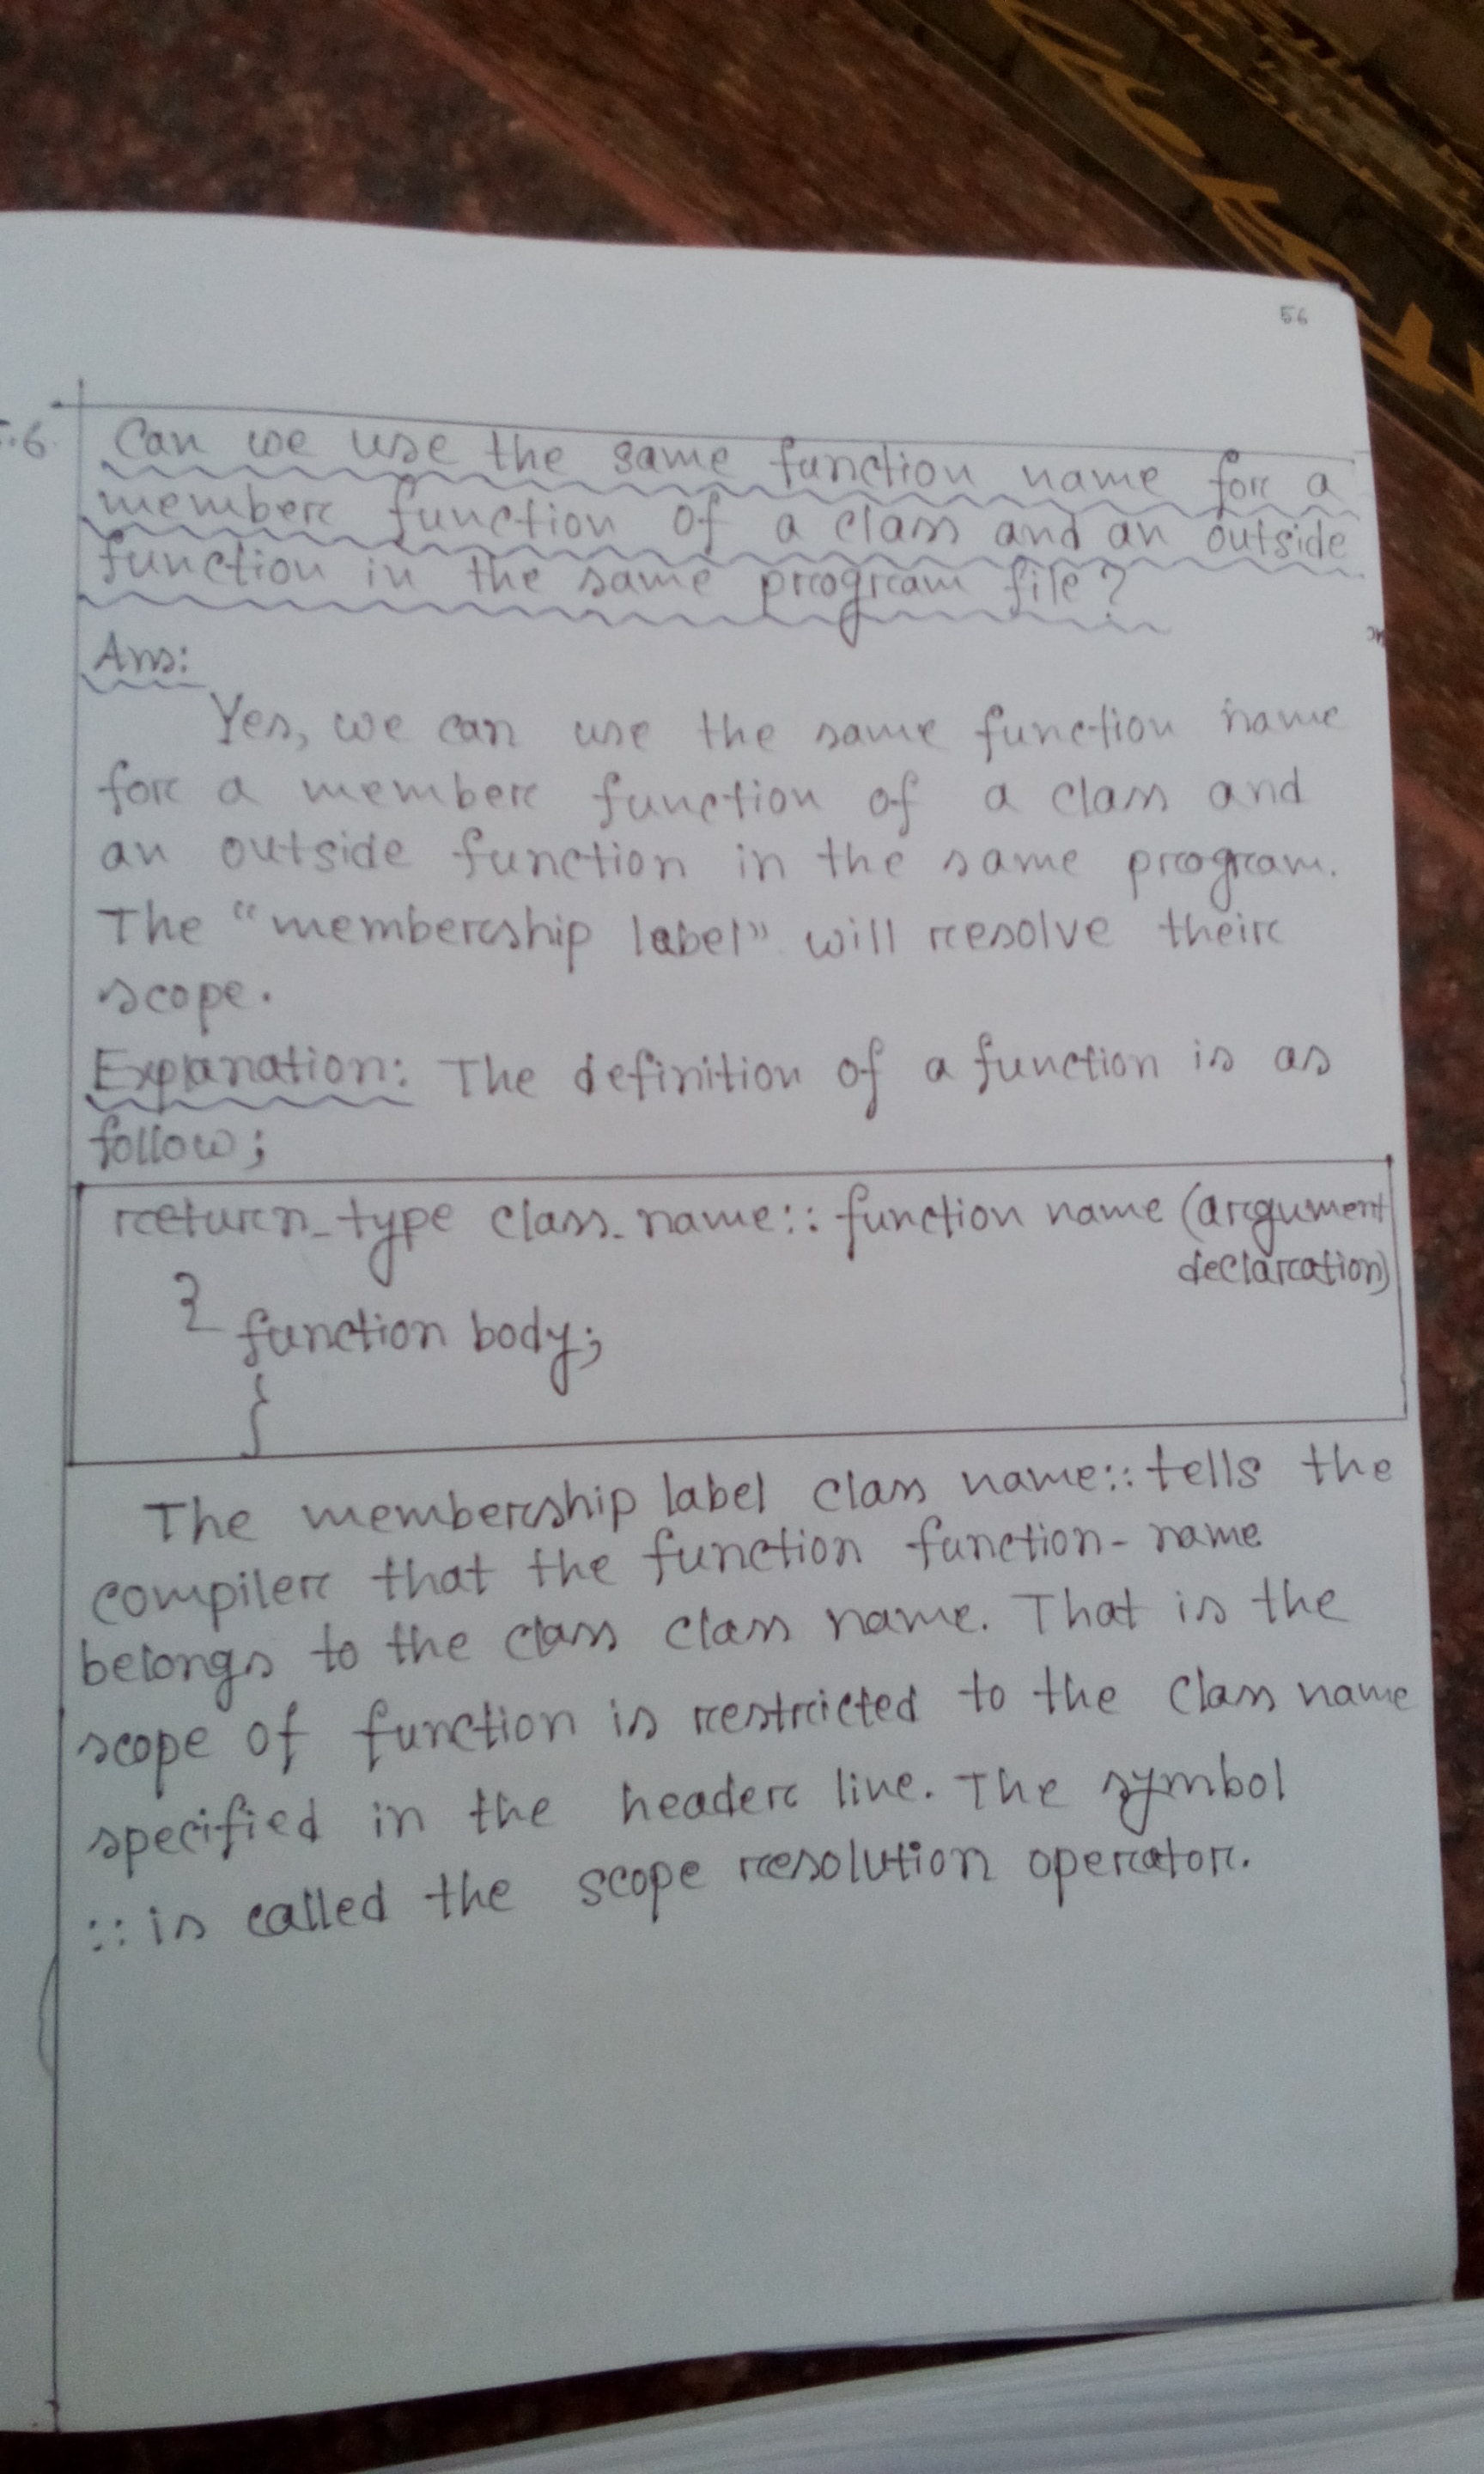 56
.6. Can we use the same function name for a
member function of a class and an outside
function in the same program file?
Ans:
Yes, we can use the same function name
for a member function of a class and
an outside function in the same program.
The "membership label" will resolve their
scope.
Explanation: The definition of a function is as
follow;
return_type class_name:: function name (argument
declaration)
{
function body;
}
The membership label class name:: tells the
compiler that the function function-name
belongs to the class class name. That is the
scope of function is restricted to the class name
specified in the header line. The symbol
:: is called the scope resolution operator.